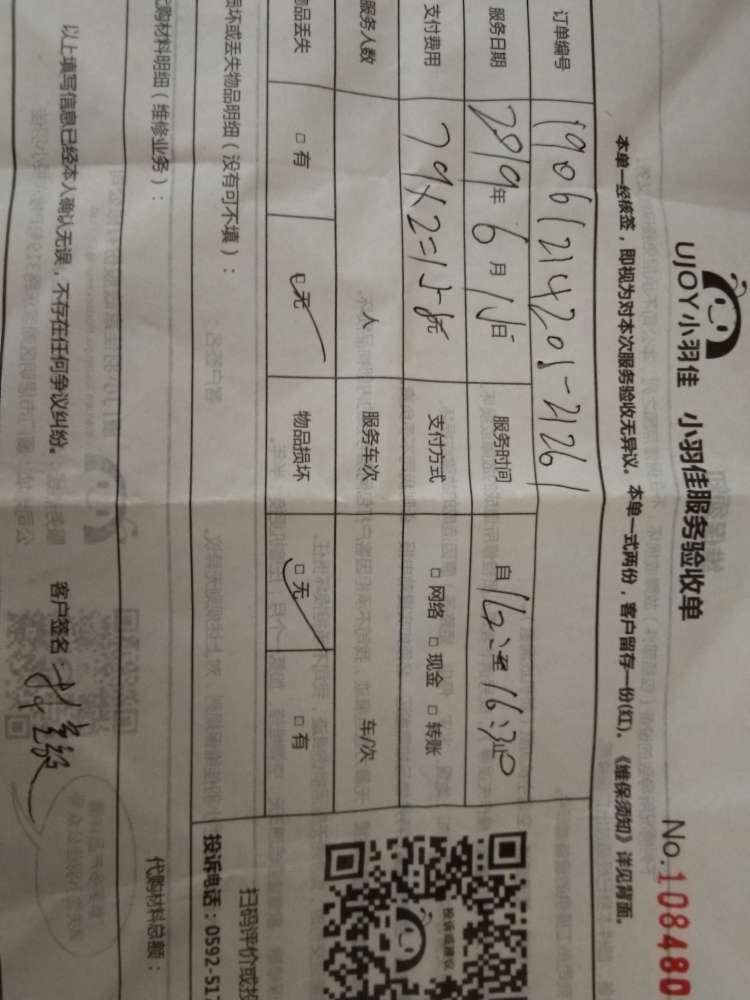 UJOY小羽佳 小羽佳服务验收单
No.108480
本单一经核签，即视为对本次服务验收无异议。本单一式两份，客户留存一份(红)。《维保须知》详见背面。
订单编号 190612142015-21261
服务日期 2019年6月15日 服务时间 自 14:至16:30止
支付费用 79×2=158元 支付方式 □网络 □现金 □转账
服务人数 人 服务车次 车/次
物品丢失 □有 □无 物品损坏 □无 □有
损坏或丢失物品明细（没有可不填）：
投诉或建议
扫码评价或投
投诉电话：0592-517
代购材料明细（维修业务）： 代购材料总额：
以上填写信息已经本人确认无误，不存在任何争议纠纷。 客户签名：